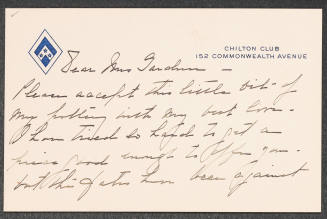 CHILTON CLUB
152 COMMONWEALTH AVENUE
Dear Mrs Gardner –
Please accept this little bit of
my pottery with my best love –
I have tried so hard to get a
piece good enough to offer you –
but the fates have been against